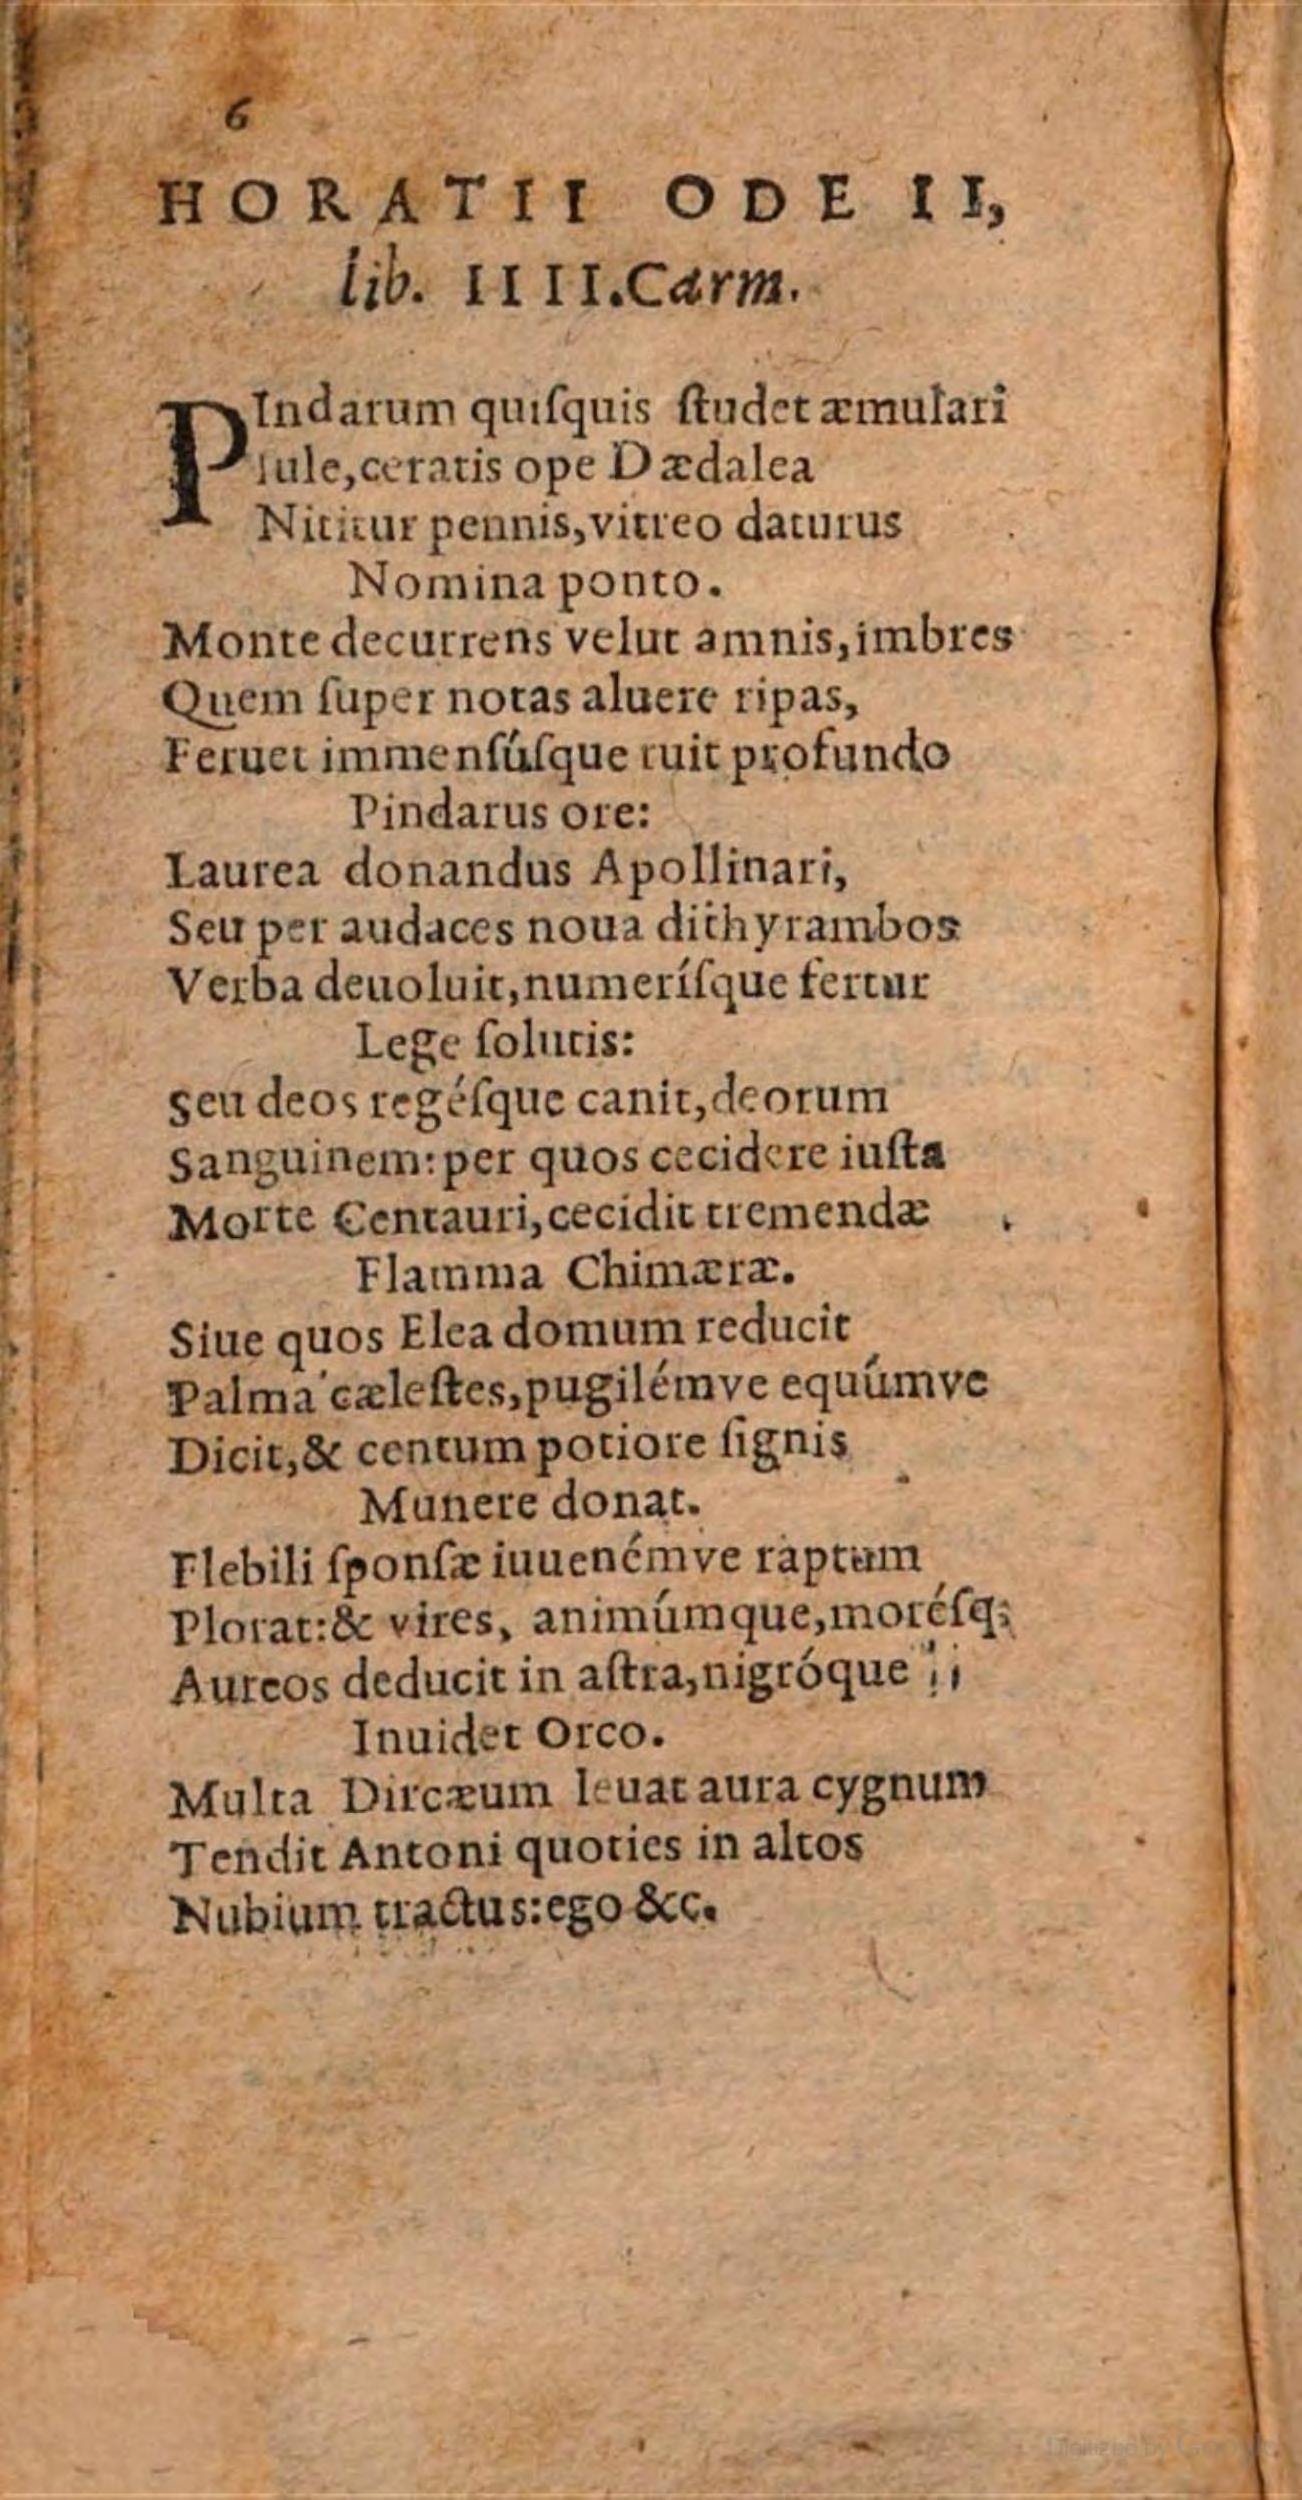 6
HORATII ODE II,
lib. IIII. Carm.
PIndarum quiſquis ſtudet æmulari
Iule, ceratis ope Dædalea
Nititur pennis, vitreo daturus
Nomina ponto.
Monte decurrens velut amnis, imbres
Quem ſuper notas aluere ripas,
Feruet immenſúſque ruit profundo
Pindarus ore:
Laurea donandus Apollinari,
Seu per audaces noua dithyrambos
Verba deuoluit, numeríſque fertur
Lege ſolutis:
Seu deos regéſque canit, deorum
Sanguinem: per quos cecidere iuſta
Morte Centauri, cecidit tremendæ
Flamma Chimæræ.
Siue quos Elea domum reducit
Palma cæleſtes, pugilémve equúmve
Dicit, & centum potiore ſignis
Munere donat.
Flebili ſponſæ iuuenémve raptum
Plorat: & vires, animúmque, moréſq;
Aureos deducit in aſtra, nigróque
Inuidet Orco.
Multa Dircæum leuat aura cygnum
Tendit Antoni quoties in altos
Nubium tractus: ego &c.